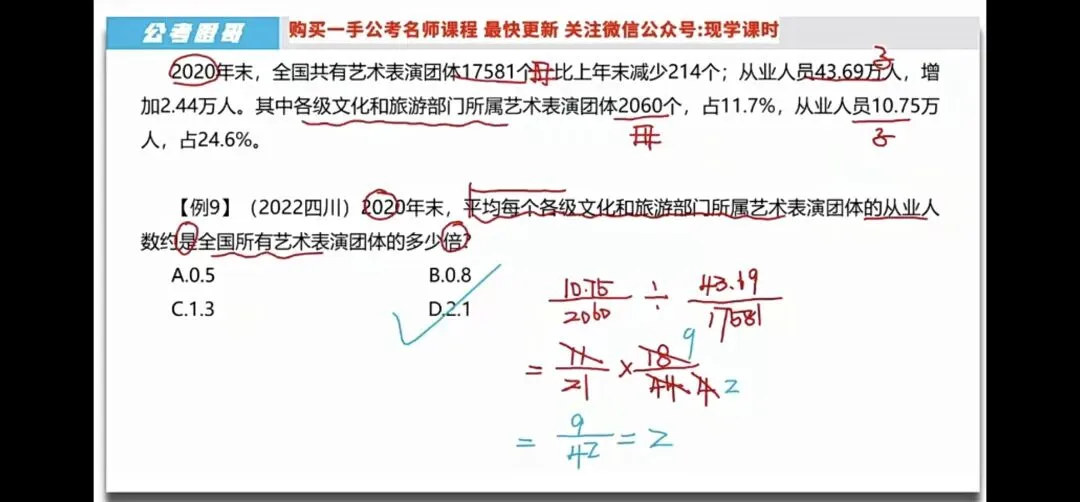 公考甿哥 购买一手公考名师课程 最快更新 关注微信公众号:现学课时
2020年末，全国共有艺术表演团体17581个，比上年末减少214个；从业人员43.69万人，增
母
子
加2.44万人。其中各级文化和旅游部门所属艺术表演团体2060个，占11.7%，从业人员10.75万
母
子
人，占24.6%。
【例9】（2022四川）2020年末，平均每个各级文化和旅游部门所属艺术表演团体的从业人
数约是全国所有艺术表演团体的多少倍?
A.0.5 B.0.8
C.1.3 D.2.1
10.75 ÷ 43.69
2060 17581
9
= 11 × 18
21 44 4 2
= 9 = 2
42